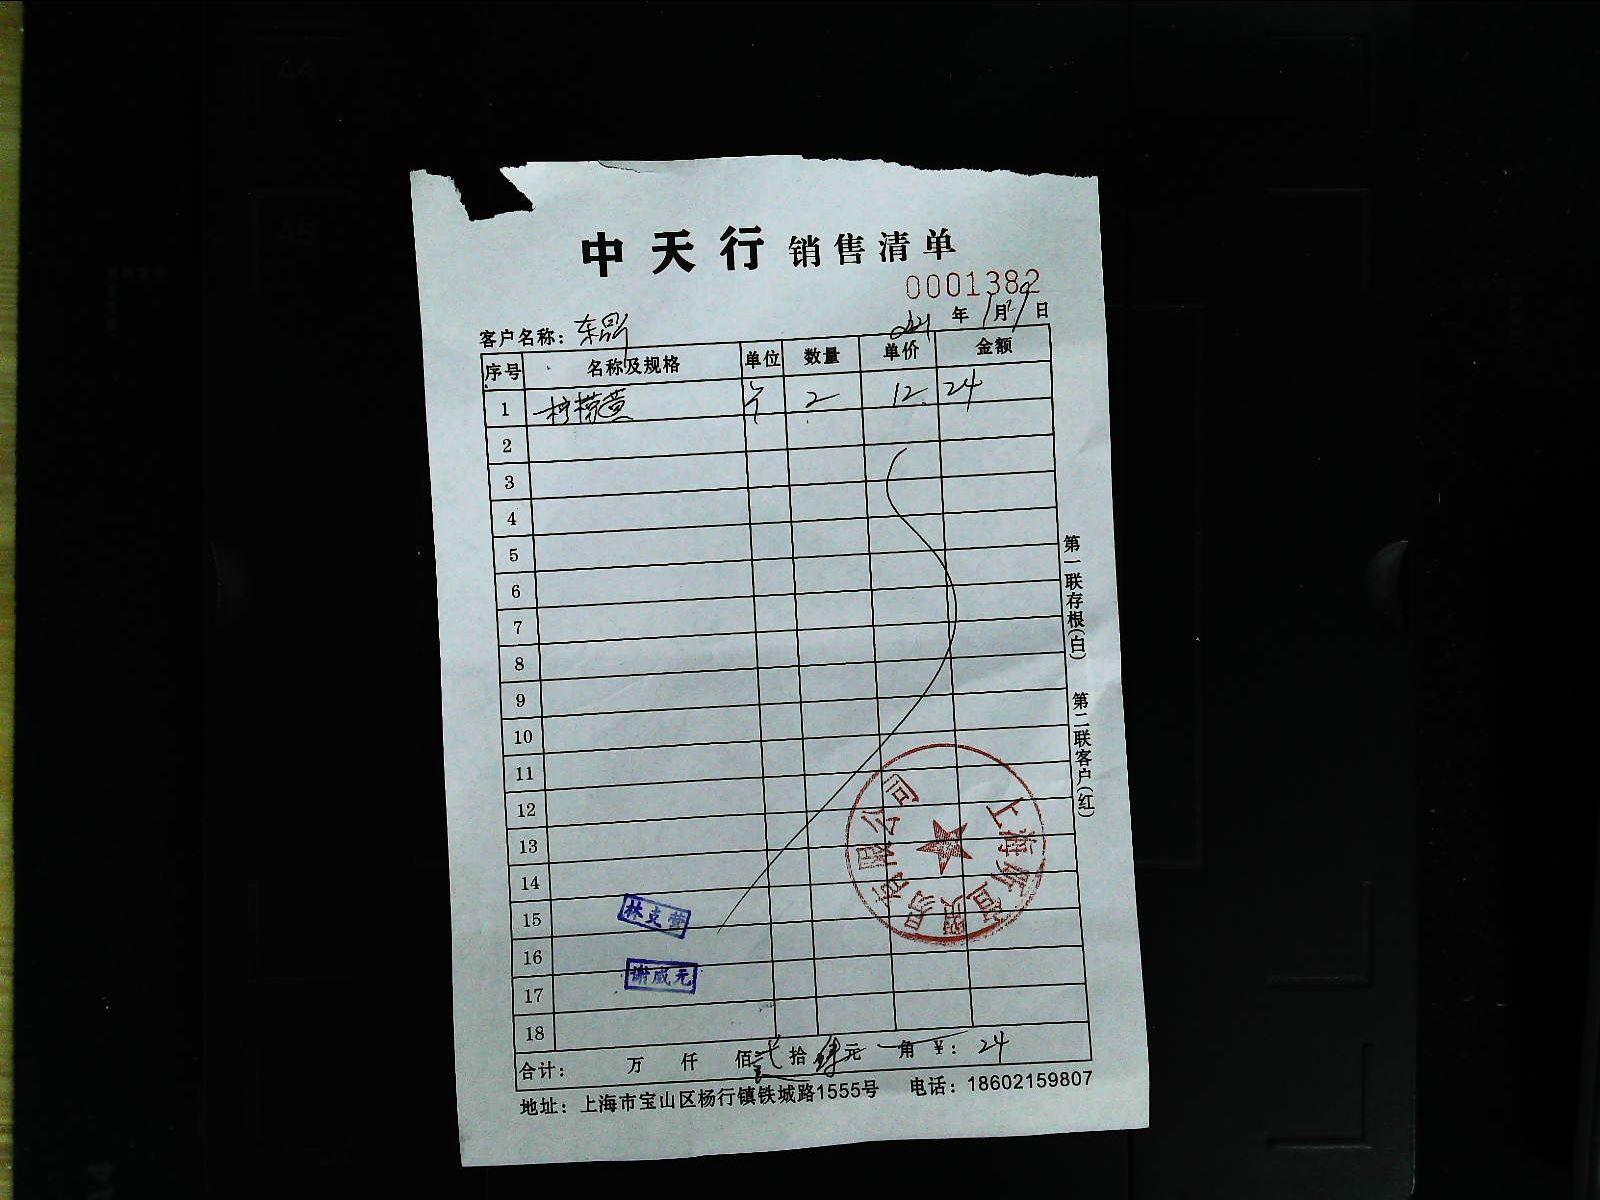 中天行 销售清单
0001382
年1月29日
客户名称：东
序号 名称及规格 单位 数量 单价 金额
1 柠檬黄 个 2 12. 24
2
3
4
5
6
7
8
9
10
11
12
13
14
15 林立营
16
17 谢咸元
18
上海新 贸易有限公司
合计： 万 仟 佰 贰 拾 肆 元 角 ¥： 24
地址：上海市宝山区杨行镇铁城路1555号 电话：18602159807
第一联存根(白) 第二联客户(红)